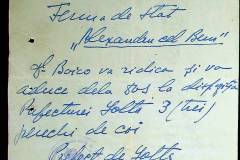 Ferma de stat
"Alexandru cel Bun"
Boico va ridica și va
aduce dela sos la dispoziția
Prefecturei Baltă 3 (trei)
perechi de cai
Prefect de Baltă